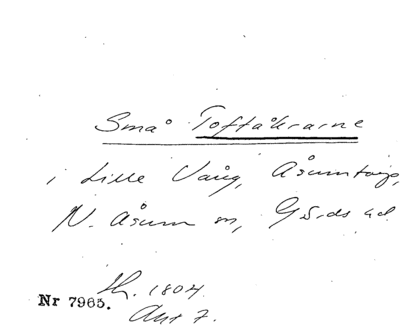 Små Toftåkrarne
i Lille Vång, Åsumtorp,
N. Åsum sn, Gärds hd.
Sk. 1804.
Nr 7965. Akt 7.